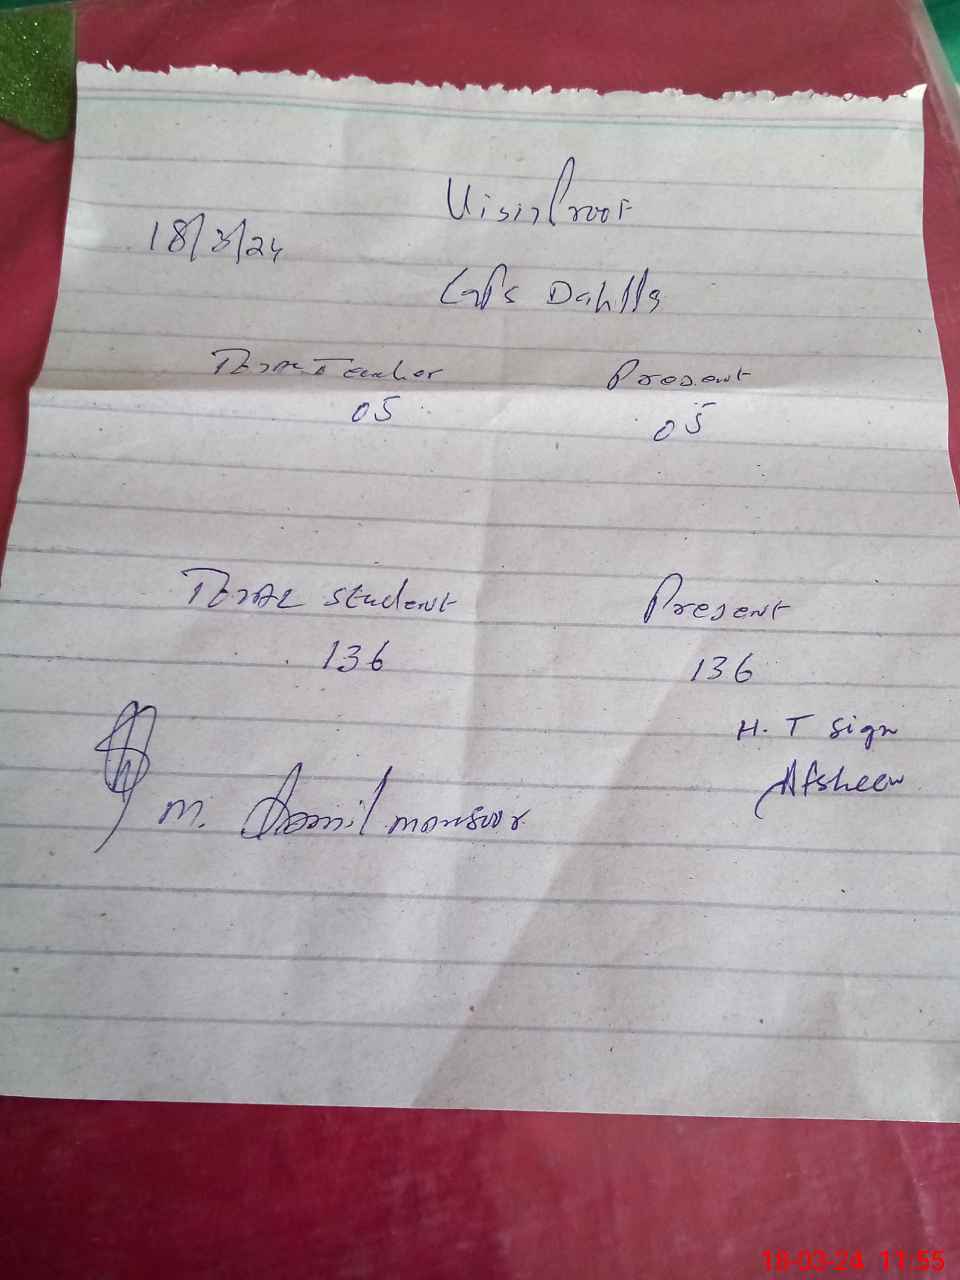 Visit Proof
18/3/24
GGPS Dahlla
Total Teacher Present
05 05
Total Student Present
136 136
H. T Sign
Afsheen
M. Jamil mansoor
18-03-24 11:55